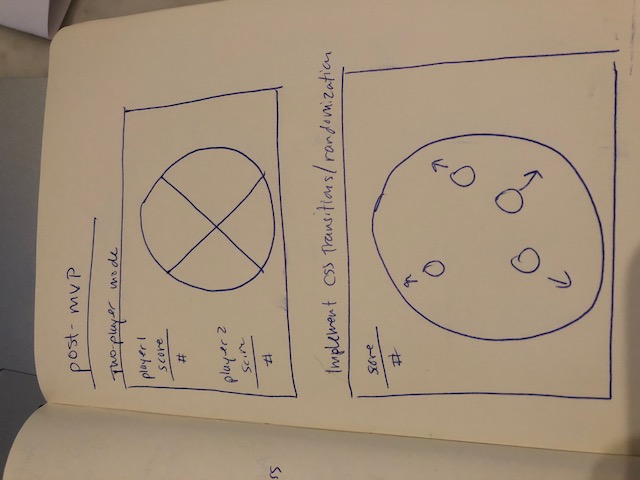 post-mvp
Two-player mode
player 1
score
#
player 2
score
#
Implement CSS Transitions/randomization
score
#
ss